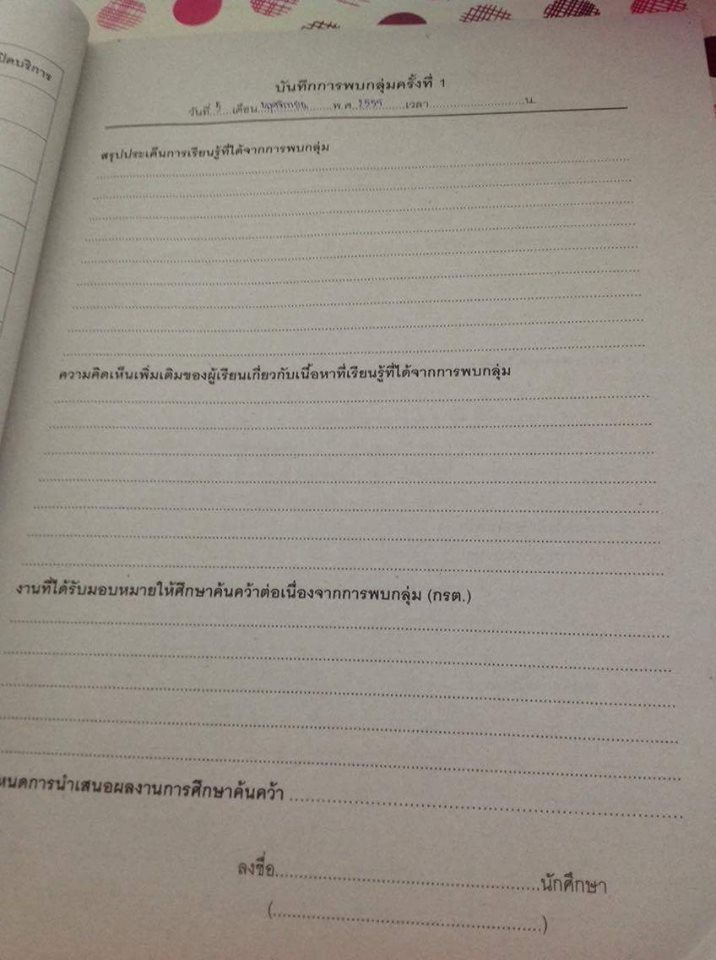 ปิดบริการ
บันทึกการพบกลุ่มครั้งที่ 1
วันที่ 5 เดือน พฤศจิกายน พ.ศ. 2555 เวลา น.
สรุปประเด็นการเรียนรู้ที่ได้จากการพบกลุ่ม
ความคิดเห็นเพิ่มเติมของผู้เรียนเกี่ยวกับเนื้อหาที่เรียนรู้ที่ได้จากการพบกลุ่ม
งานที่ได้รับมอบหมายให้ศึกษาค้นคว้าต่อเนื่องจากการพบกลุ่ม (กรต.)
หนดการนำเสนอผลงานการศึกษาค้นคว้า
ลงชื่อ นักศึกษา
( )